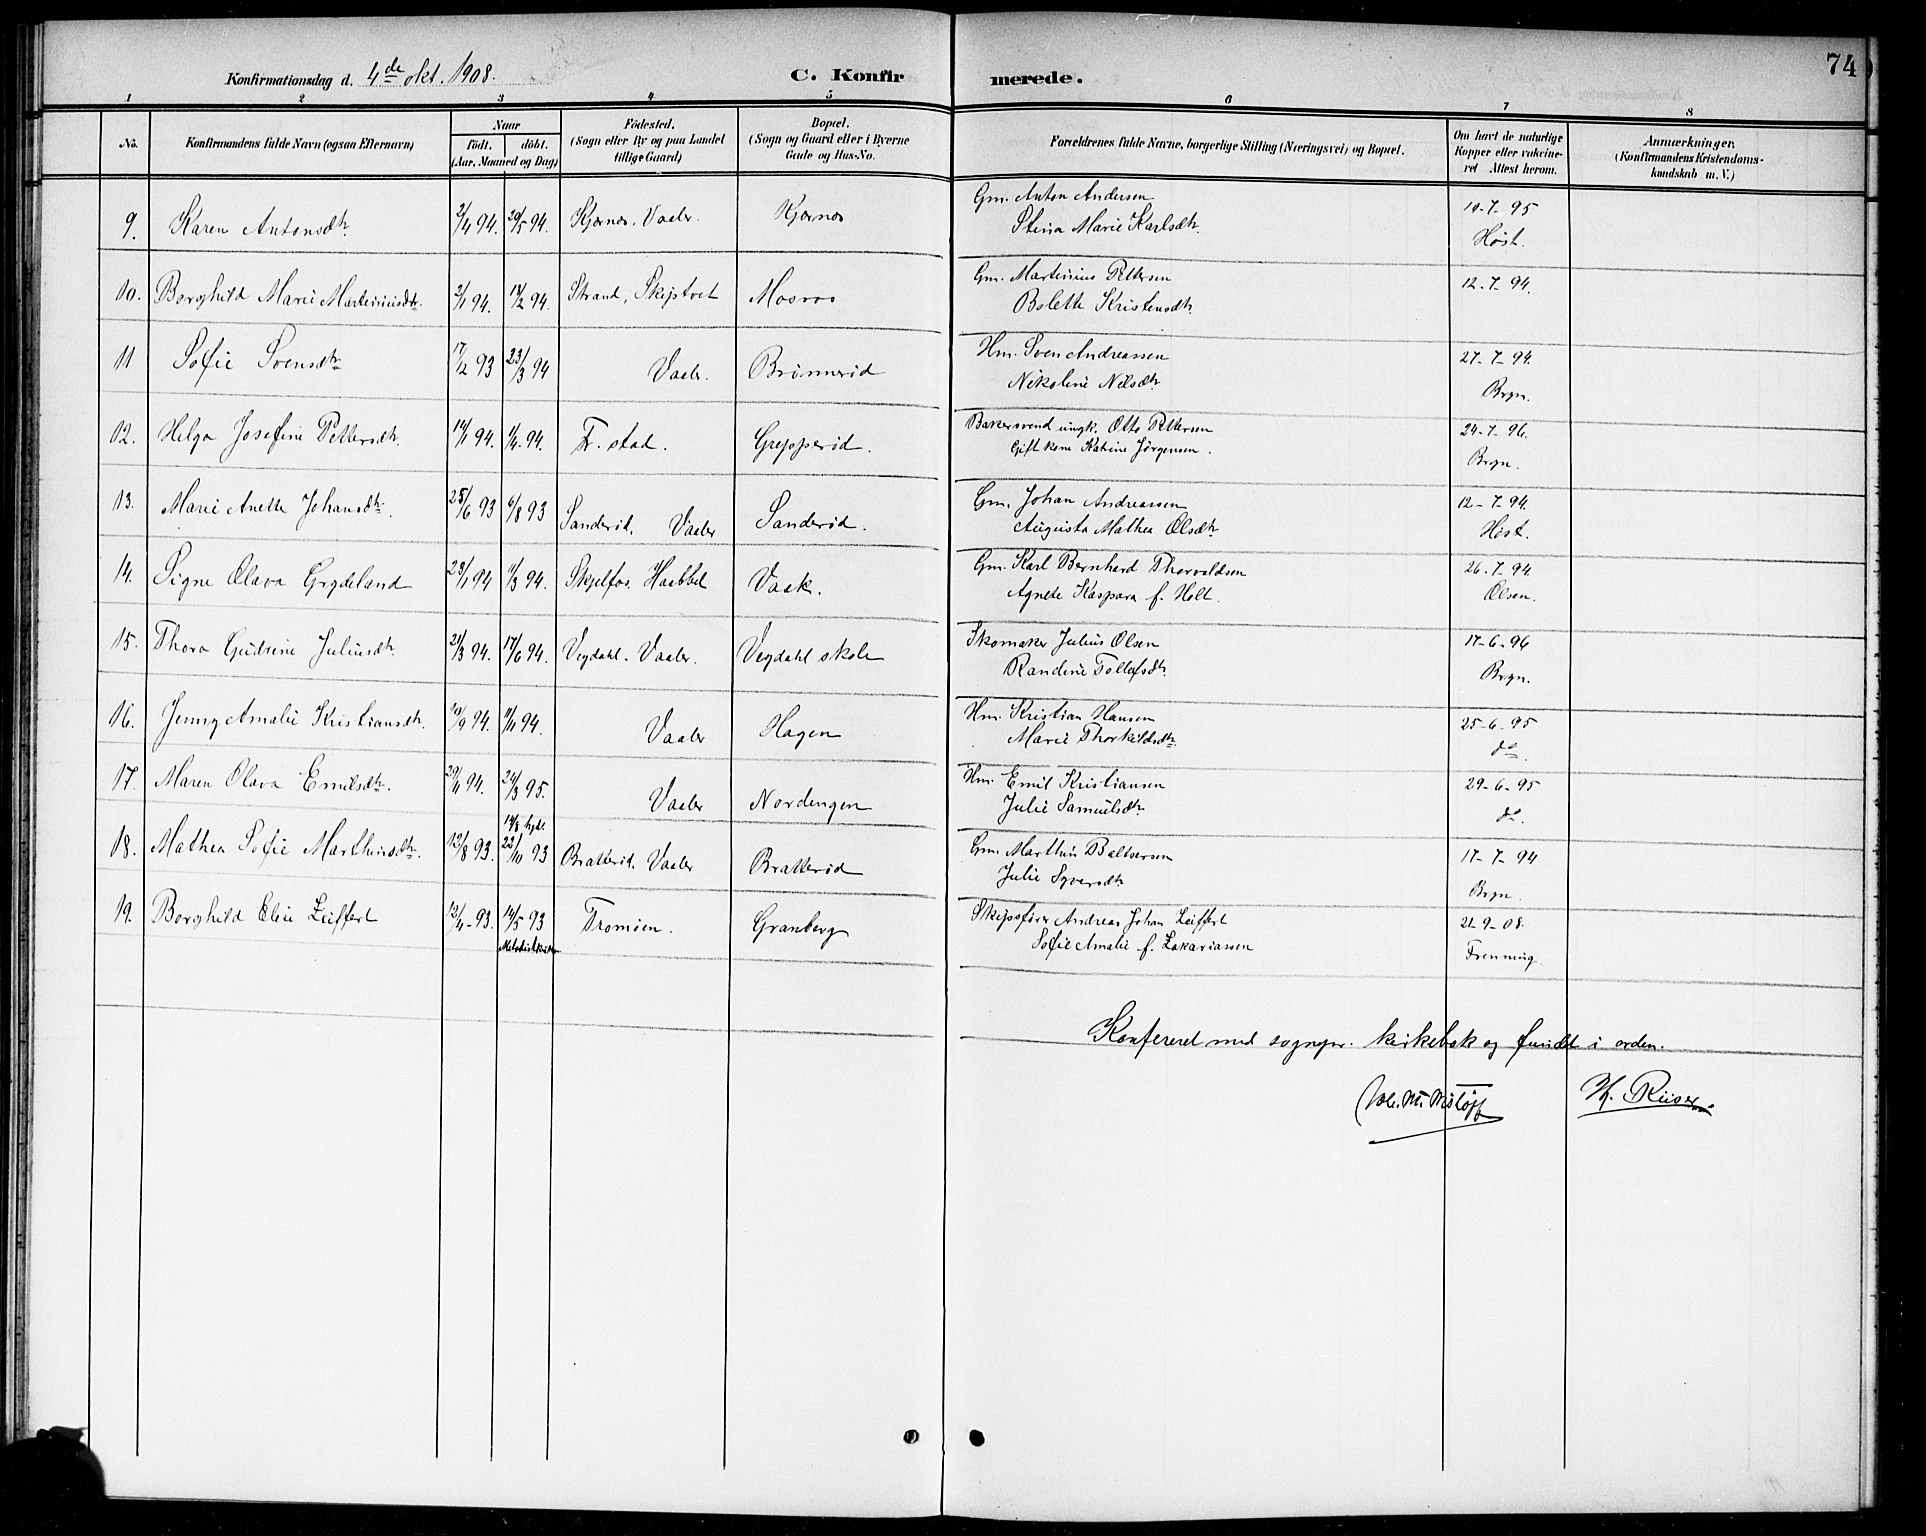 74
Konfirmationsdag d. 4de okt. 1908.
C. Konfirmerede.
1 2 3 4 5 6 7 8
No. Konfirmandens fulde Navn (ogsaa Efternavn) Naar Født. døbt. (Aar, Maaned og Dag) Fødested. (Sogn eller By og paa Landet tillige Gaard) Bopæl. (Sogn og Gaard eller i Byerne Gade og Hus-No. Forældrenes fulde Navne, borgerlige Stilling (Næringsvei) og Bopæl. Om havt de naturlige Kopper eller vakcineret Attest herom. Anmærkninger. (Konfirmandens Kristendomskundskab m. V.)
9. Karen Antonsdtr. 2/4 94. 20/5 94. Kjærnes, Vaaler. Kjærnes Gm. Anton Andersen 10-7-95
Stina Marie Karlsdtr. Høst.
10. Borghild Marie Martiniusdtr. 2/1 94. 18/2 94. Strand, Skiptvet Mosvos Gm. Martinius Pettersen 12-7-94.
Bolette Kristensdtr.
11 Sofie Svensdtr 17/12 93 23/3 94 Vaaler. Brønnerød Hm. Sven Andreassen 27-7-94.
Nikoline Nilsdtr. Brgn.
12. Helga Josefine Pettersdtr. 14/1 94. 1/4 94. Fr.stad. Grepperød. Bakersvend ungk. Otto Pettersen 24-7-96.
Gift kone Katrine Jørgensen. Brgn.
13. Marie Anette Johansdtr. 25/6 93 6/8 93 Sanderød, Vaaler Sanderød. Gm. Johan Andreassen 12-7-94.
Augusta Mathea Olsdtr. Høst.
14. Signe Olava Grydeland 23/1 94 11/3 94. Skjelfos. Haabbøl Vaak. Gm. Karl Bernhard Thorvaldsen 26-7-94.
Agnete Kaspara f. Holt. Olsen.
15. Thora Gudrine Juliusdtr. 21/3 94. 17/6 94. Vegdahl. Vaaler. Vegdahl skole Skomaker Julius Olsen 17-6-96
Randine Tollefsdtr. Brgn.
16. Jenny Amalie Kristiansdtr. 10/9 94. 11/11 94. Vaaler Hagen Hm. Kristian Hansen 25-6-95
Marie Thorkildsdtr. do.
17. Maren Olava Emilsdtr. 29/11 94. 24/3 95. Vaaler Nordengen Hm. Emil Kristiansen 29-6-95
Julie Samuelsdtr. do.
18. Mathea Sofie Marthinsdtr. 12/8 93. 22/10 93 Bratterød. Vaaler Bratterød Gm. Marthin Baltsersen 17-7-94
Julie Syversdtr Brgn.
19. Borghild Elvie Leiffert 12/4-93. 14/5 93 Tromøen. Granberg Skipsfører Andreas Johan Leiffert 21-9-08.
Metodistkirken Sofie Amalie f. Zakariassen Frenning
Konfereret med sognepr. kirkebok og fundet i orden.
H. Riiser.